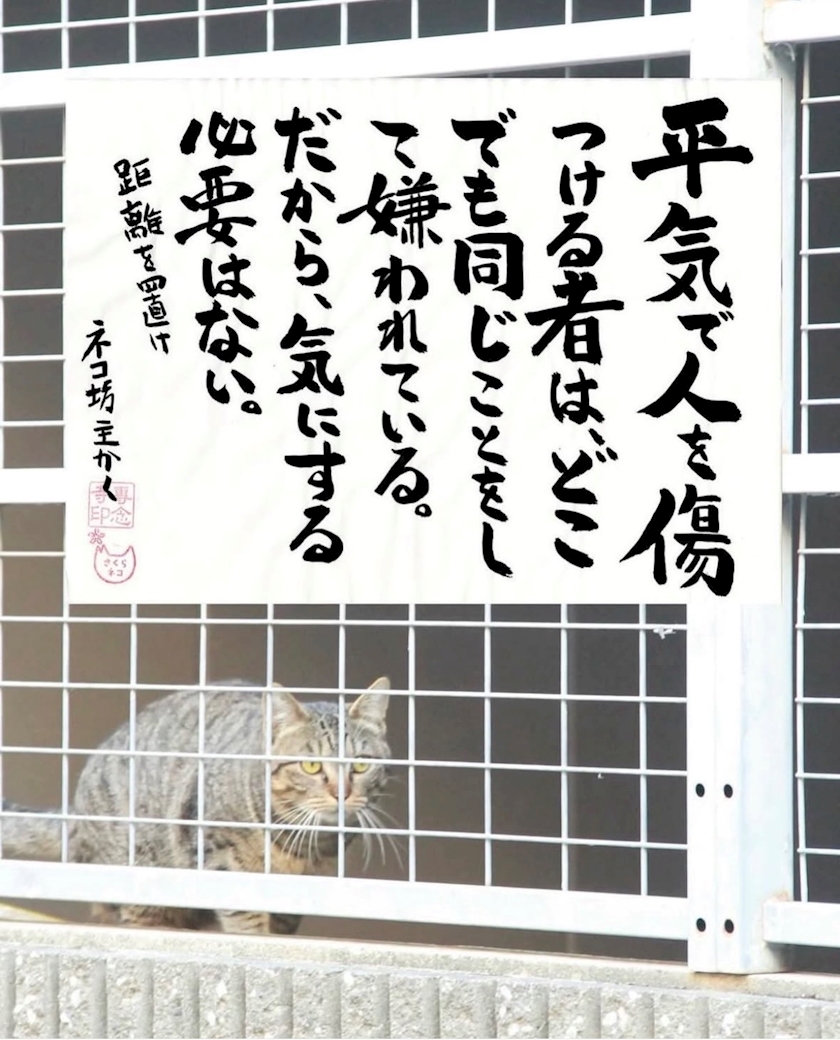 平気で人を傷
つける者は、どこ
でも同じことをし
て嫌われている。
だから、気にする
必要はない。
距離を置け
ネコ坊主かく
専念
寺印
さくら
ネコ